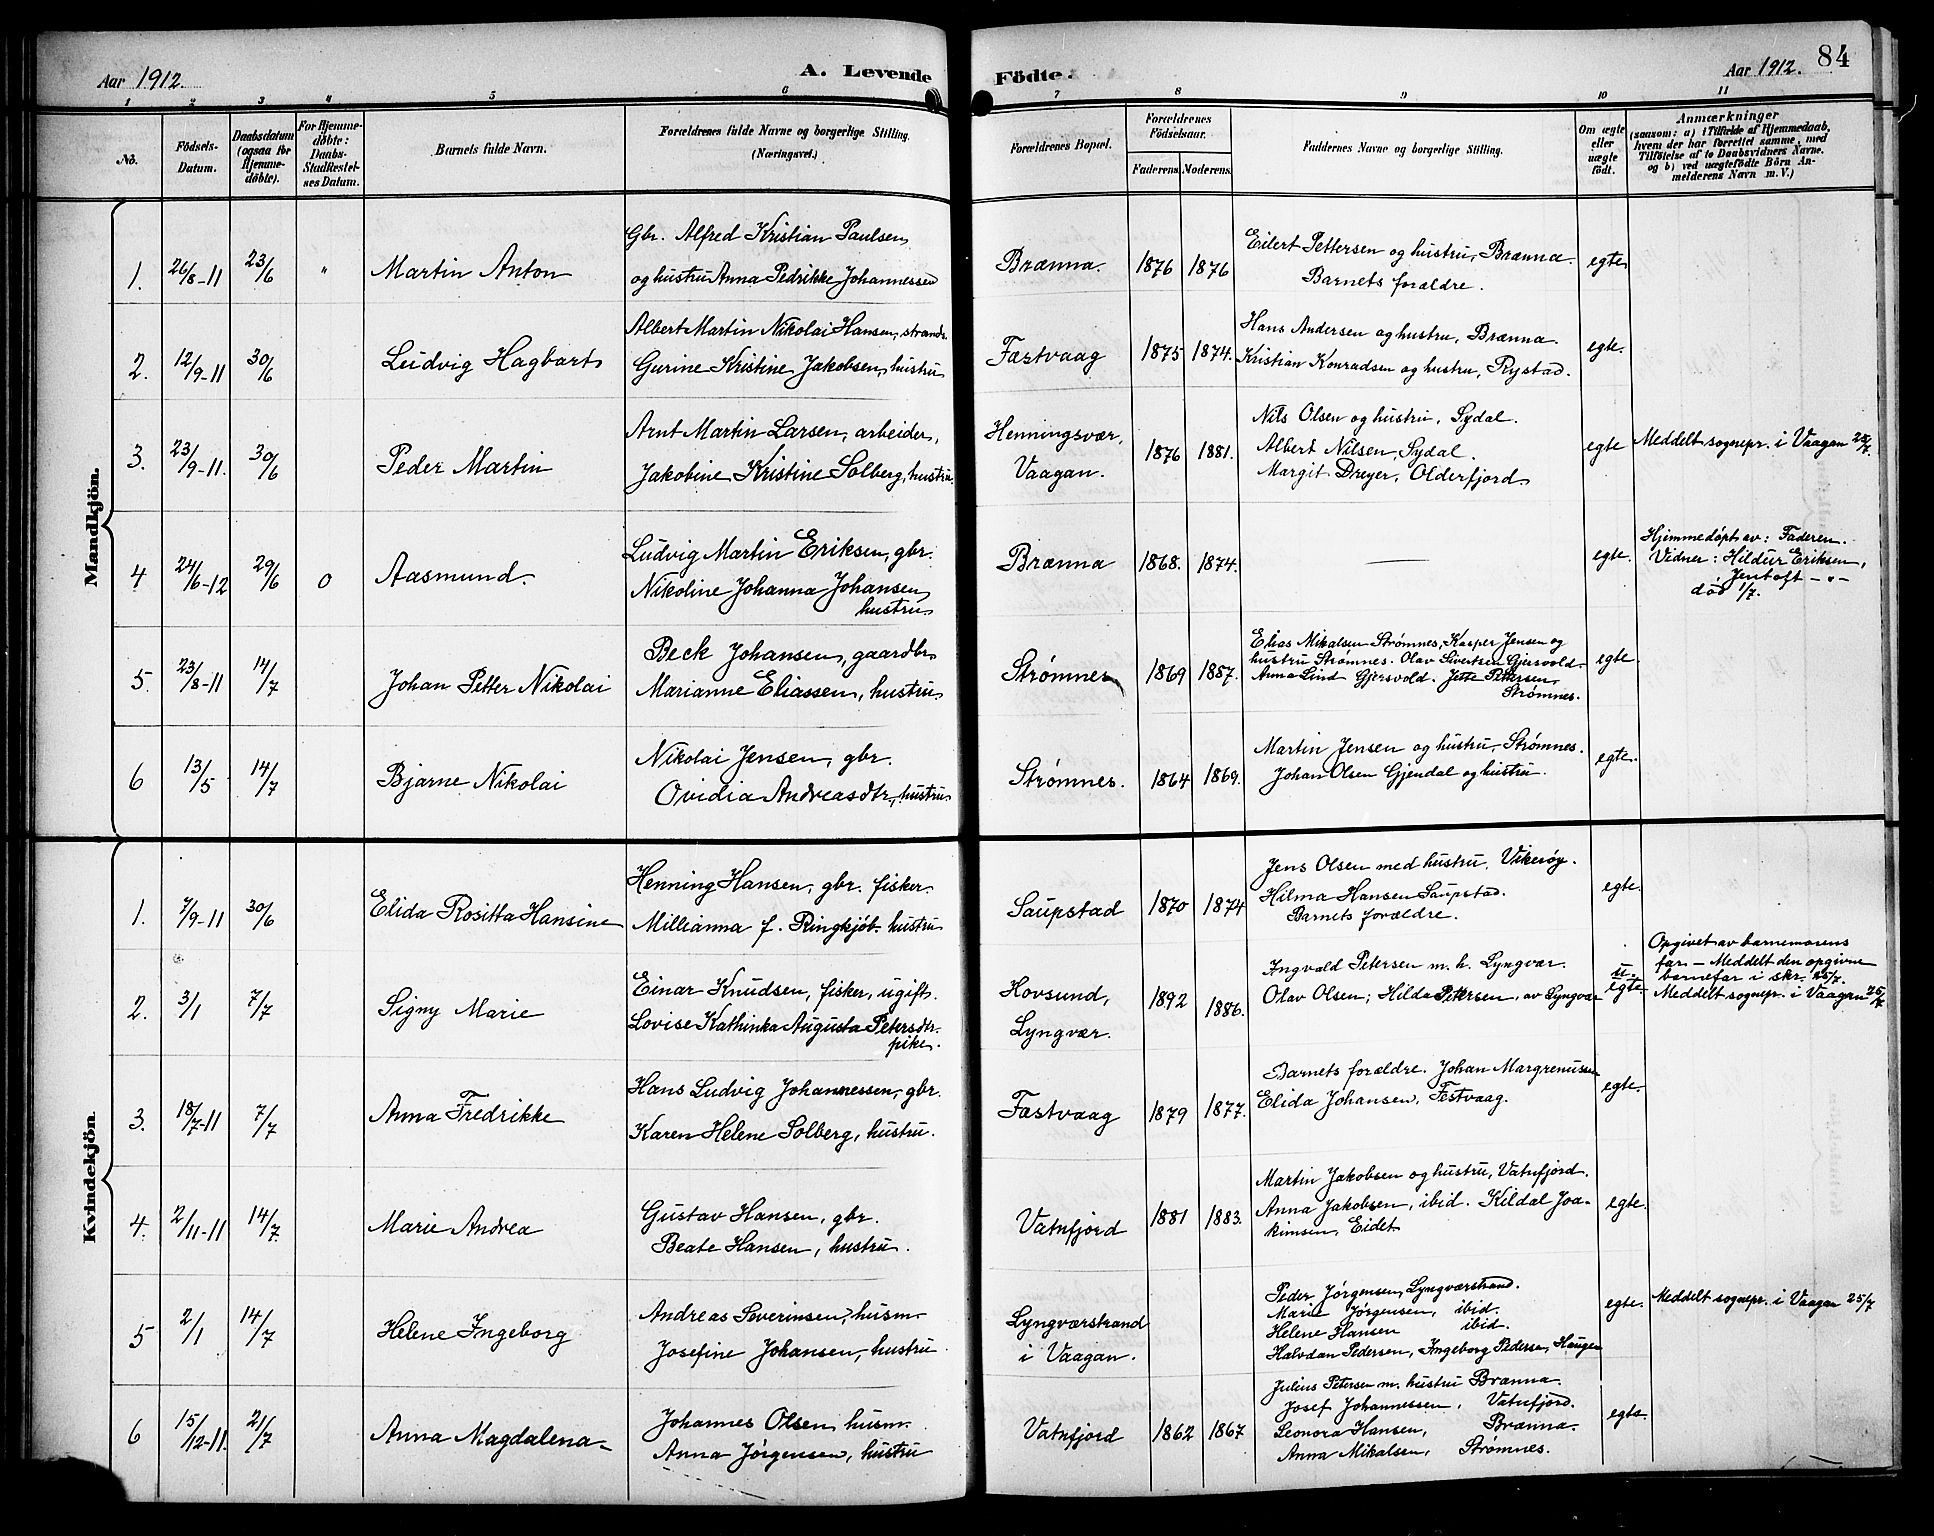 Aar 1912.
A. Levende
Födte.
Aar 1912.
84
1 2 3 4 5 6 7 8 9 10 11
No.
Födsels-
Datum.
Daabsdatum
(ogsaa for
Hjemme-
döbte).
For Hjemme-
döbte:
Daabs-
Stadfæstel-
ses Datum.
Barnets fulde Navn.
Forældrenes fulde Navne og borgerlige Stilling.
(Næringsvei.)
Forældrenes Bopæl.
Forældrenes
Födselsaar.
Faderens. Moderens.
Faddernes Navne og borgerlige Stilling.
Om ægte
eller
uægte
födt.
Anmærkninger
(saasom: a) i Tilfælde af Hjemmedaab,
hvem der har forrettet samme, med
Tilföielse af to Daabsvidners Navne.
og b) ved uægtefödte Börn An-
melderens Navn m. V.)
Mandkjön.
1. 26/8-11 23/6 " Martin Anton
Gbr. Alfred Kristian Paulsen
og hustru Anna Pedrikke Johannessen
Brænna. 1876 1876
Eilert Pettersen og hustru, Brænna.
Barnets forældre.
egte
2. 12/9-11 30/6 Ludvig Hagbart
Albert Martin Nikolai Hansen, strands.
Gurine Kristine Jakobsen, hustru
Fæstvaag 1875 1874.
Hans Andersen og hustru, Brænna.
Kristian Konradsen og hustru, Rystad.
egte.
3. 23/9-11. 30/6 Peder Martin
Arnt Martin Larsen, arbeider,
Jakobine Kristine Solberg, hustru.
Henningsvær,
Vaagan.
1876 1881.
Nils Olsen og hustru, Sydal.
Albert Nilsen, Sydal.
Margit Dreyer, Olderfjord
egte
Meddelt sognepr. i Vaagan 25/7.
4 24/6-12 29/6 0 Aasmund.
Ludvig Martin Eriksen, gbr.
Nikoline Johanna Johansen
hustru
Brænna 1868. 1874.
egte.
Hjemmedøpt av: Faderen.
Vidner: Hildur Eriksen,
Jentoft - " -
død 1/7.
5. 23/8-11 14/7 Johan Petter Nikolai
Beck Johansen, gaardbr
Marianne Eliassen, hustru
Strømnes 1869 1887.
Elias Mikalsen Strømnes, Kasper Jensen og
hustru Strømnes. Olav Sivertsen Gjersvold
Anna Lind Gjersvold. Jette Petersen,
Strømnes.
egte
6 13/5 14/7 Bjarne Nikolai
Nikolai Jensen, gbr.
Ovidia Andreasdtr, hustru
Strømnes. 1864 1869.
Martin Jensen og hustru Strømnes.
Johan Olsen Gjendal og hustru.
egte.
Kvindekjön.
1. 7/9-11 30/6 Elida Rositta Hansine
Henning Hansen, gbr. fisker.
Millianna f. Ringkjöb. hustru
Saupstad 1870 1874
Jens Olsen med hustru, Vikerøy.
Hilma Hansen Saupstad.
Barnets forældre.
egte.
2. 3/1 7/7 Signy Marie
Einar Knudsen, fisker, ugift.
Lovise Kathinka Augusta Petersdtr.
pike.
Hovsund,
Lyngvær.
1892 1886.
Ingvald Petersen m. h. Lyngvær.
Olav Olsen; Hilda Petersen, av Lyngvær
u.
egte
Opgivet av barnemorens
far - Meddelt den opgivne
barnefar i skr. 25/7.
Meddelt sognepr. i Vaagan 25/7
3. 18/7-11 7/7 Anna Fredrikke
Hans Ludvig Johannessen, gbr.
Karen Helene Solberg, hustru.
Fæstvaag 1879 1877.
Barnets forældre. Johan Margrenussen
Elida Johansen, Festvaag.
egte.
4. 2/11-11 14/7. Marie Andrea
Gustav Hansen, gbr.
Beate Hansen, hustru.
Vatnfjord 1881 1883.
Martin Jakobsen og hustru, Vatnfjord.
Anna Jakobsen, ibid. Kildal Joa-
kimsen, Eidet
egte.
5 2/1 14/7 Helene Ingeborg
Andreas Severinsen, husm.
Josefine Johansen, hustru.
Lyngværstrand
i Vaagan.
Peder Jørgensen, Lyngværstrand.
Marie Jørgensen, ibid.
Helene Hansen ibid.
Halvdan Pedersen, Ingeborg Pedersen, Haugen
egte.
Meddelt sognepr. i Vaagan 25/7
6 15/12-11. 21/7 Anna Magdalena
Johannes Olsen, husm.
Anna Jørgensen, hustru
Vatnfjord 1862 1867
Julius Petersen m. hustru Brænna.
Josef Johannessen, Vatnfjord.
Leonora Hansen, Brænna.
Anna Mikalsen, Strømnes.
egte.